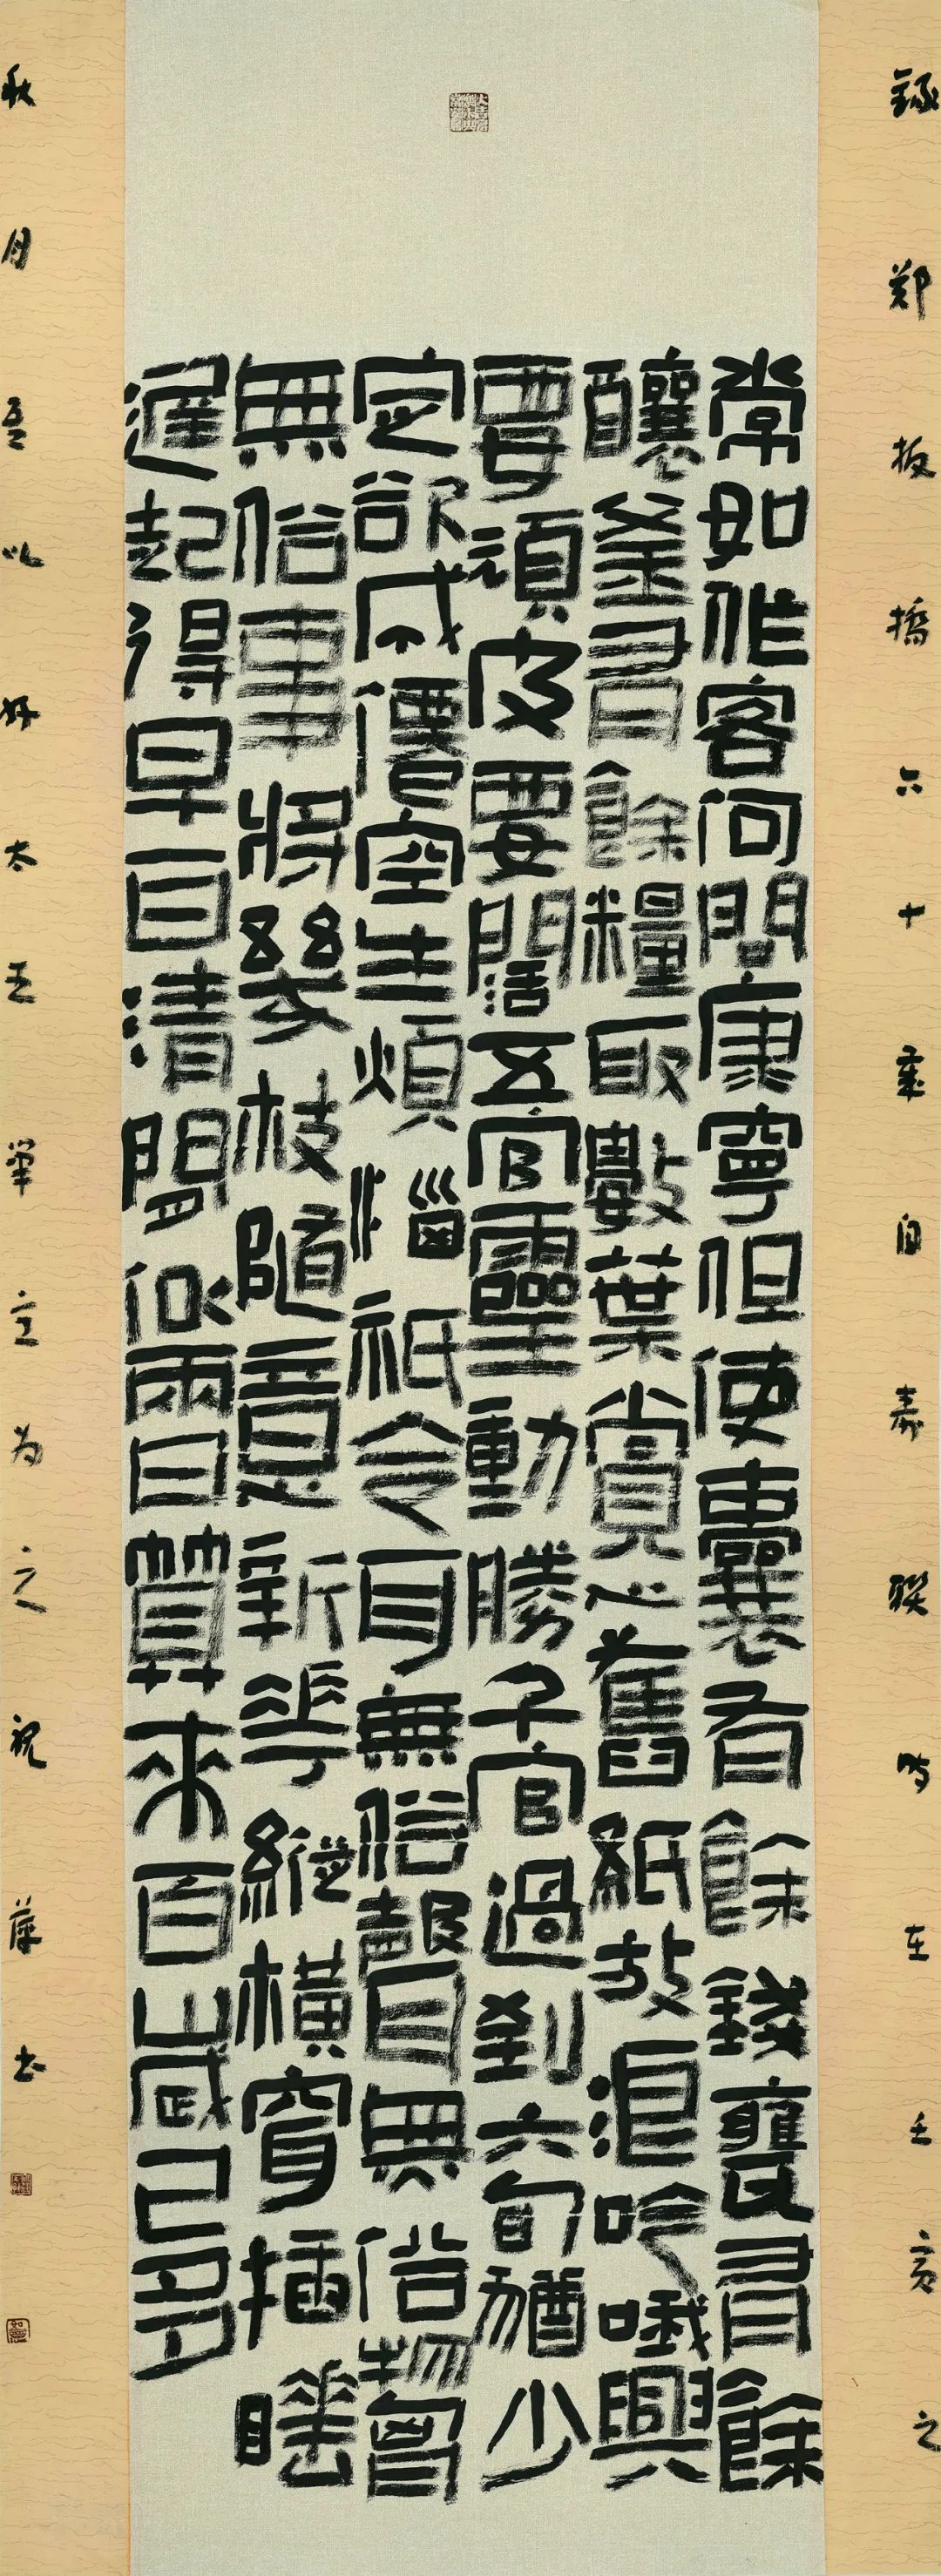 録郑板橋六十自壽联时在壬寅之
常如作客何問康寧但使囊有餘錢甕有餘
釀釜有餘糧取數葉賞心舊紙放浪吟哦興
要頑皮要闊五官靈動勝千官過到六旬猶少
定欲成僊空生煩惱祇令耳無俗聲目無俗物胷
無俗事將幾枝隨意新花縱橫穿插睡
遲起得早一日清閒似兩日算來百歲已多
秋月吾以好太王筆意为之祝书